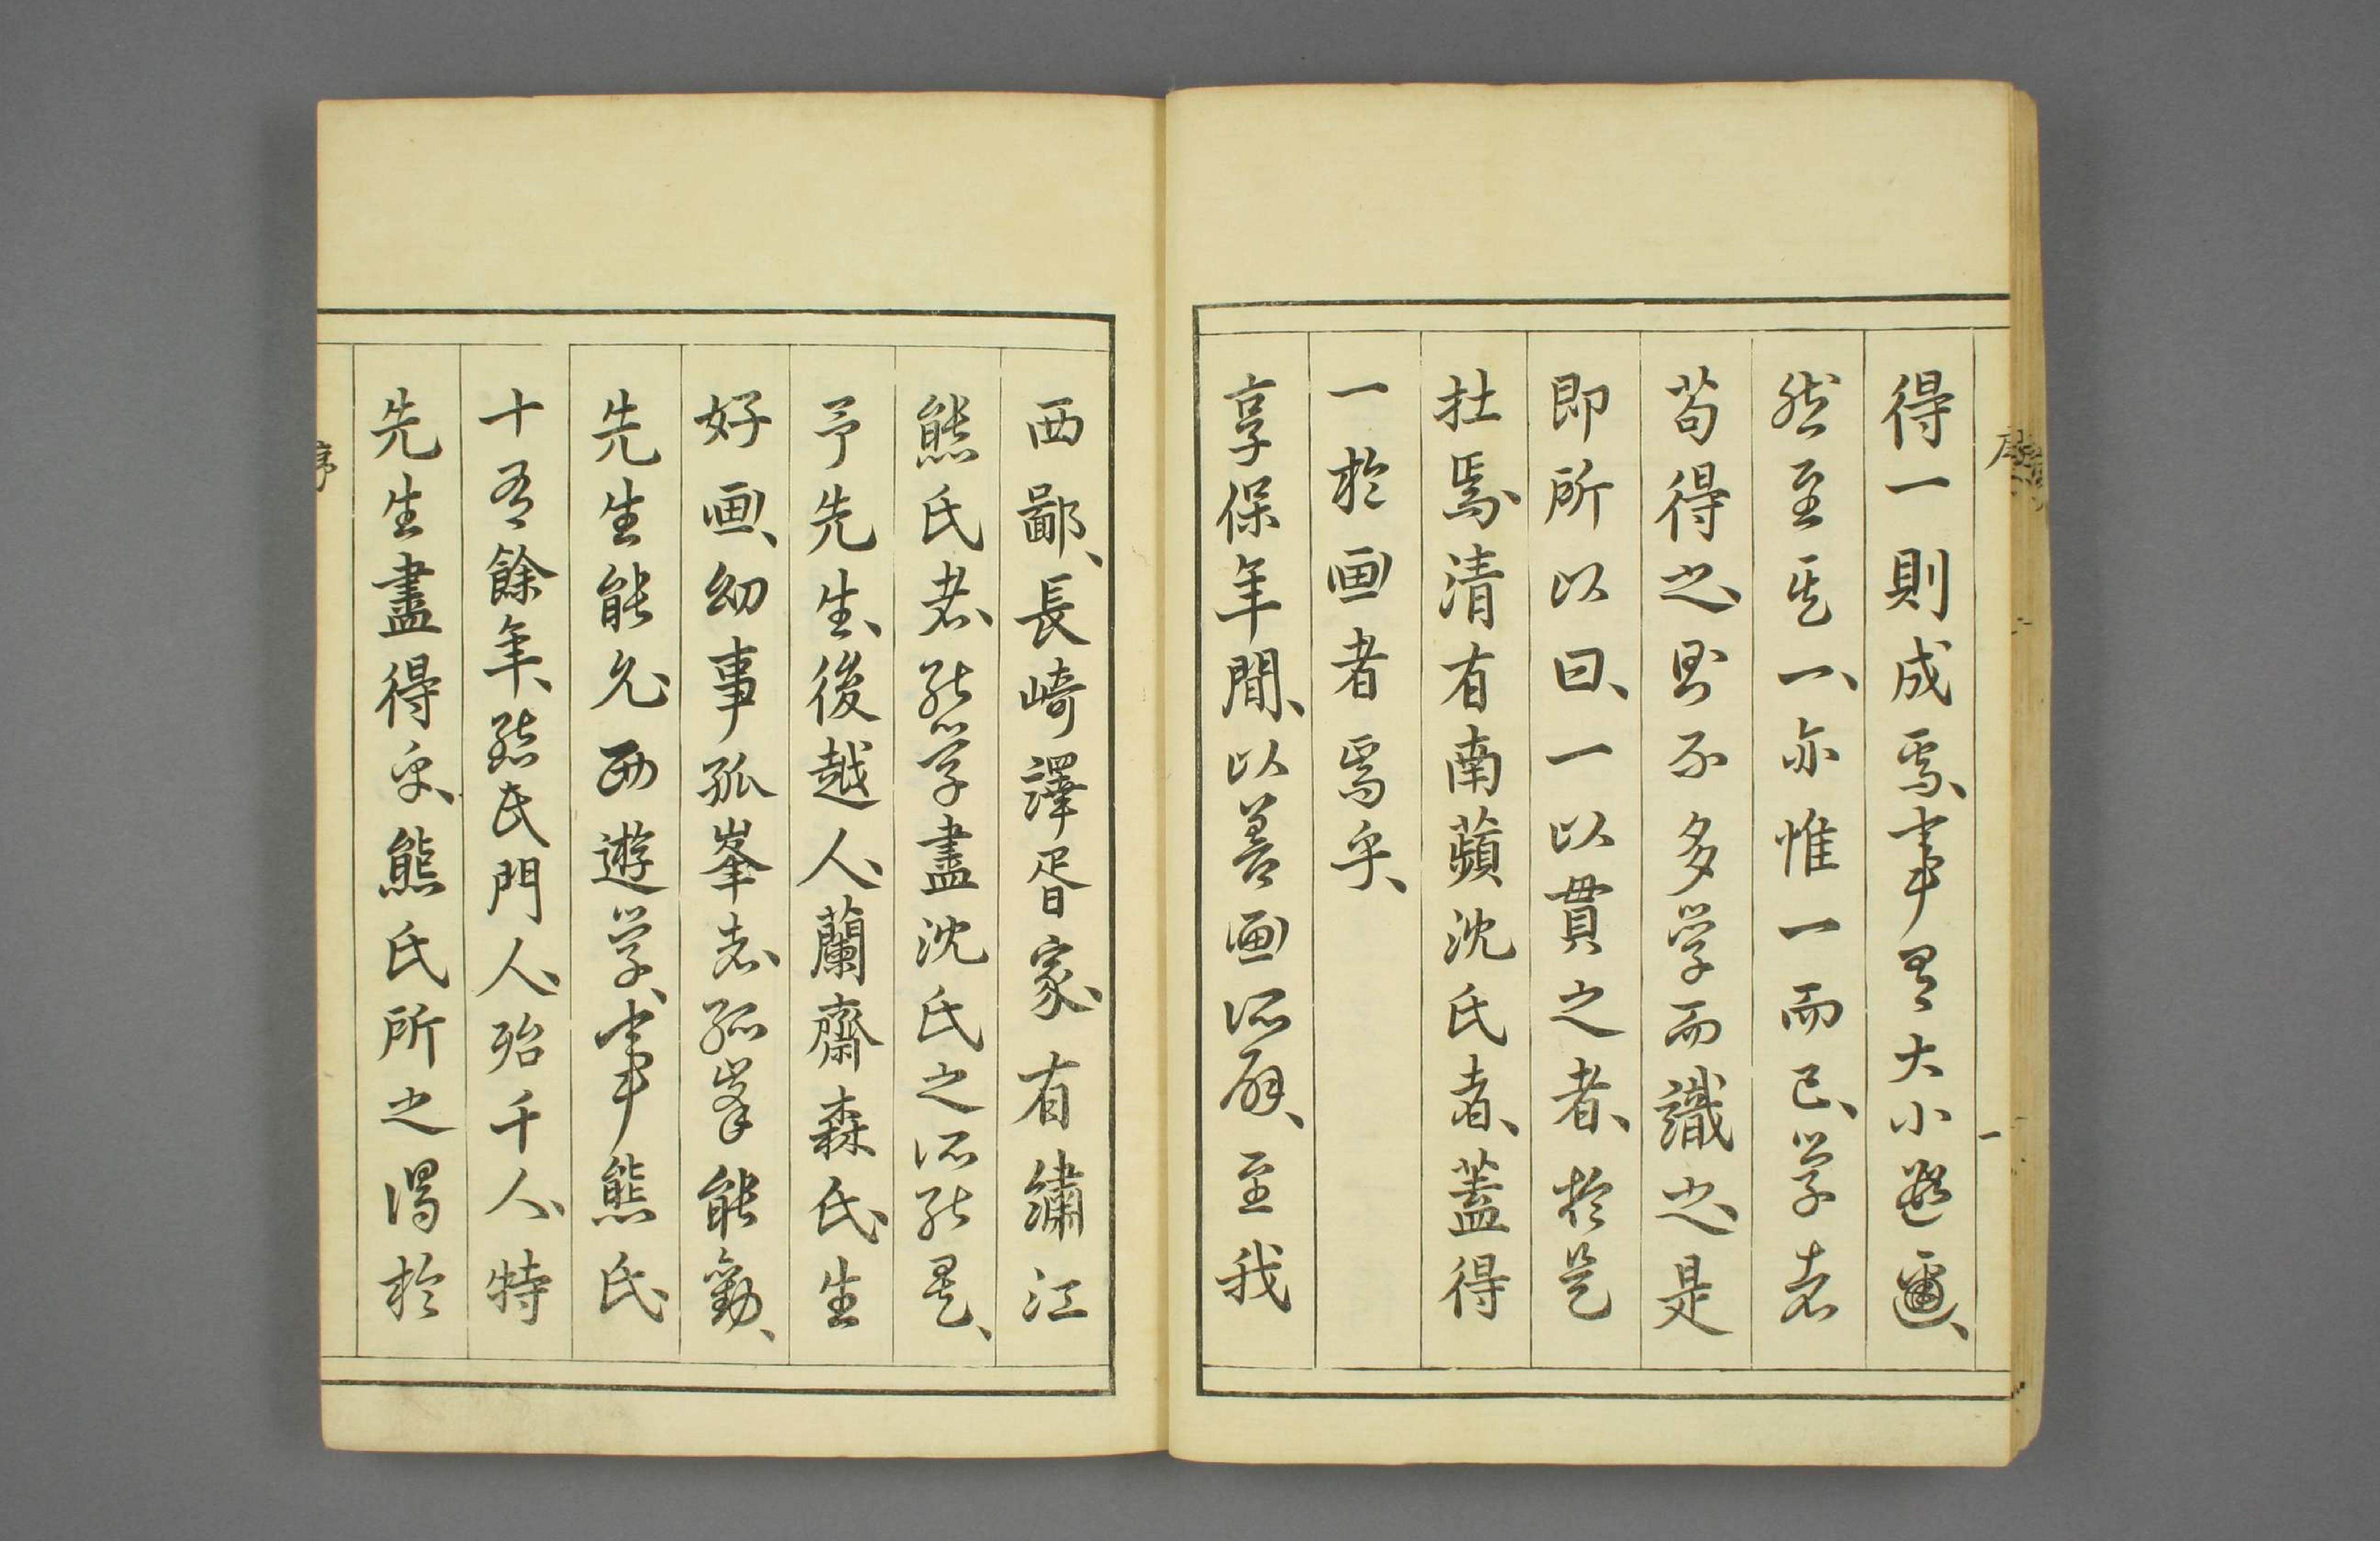 序 一
得一則成焉、事有大小遐邇、
然至其一、亦惟一而已、学者
苟得之、則不多学而識之、是
即所以曰、一以貫之者、於是
在焉、清有南蘋沈氏者、蓋得
一於画者焉乎、
享保年間、以善画所辟、至我
西鄙、長崎譯胥家、有繡江
熊氏者、能学盡沈氏之所能是、
予先生、後越人、蘭齋森氏、生
好画、幼事孤峯者、孤峯能勸、
先生能允、西遊学、事熊氏、
十有餘年、熊氏門人、殆千人、特
先生盡得乎、熊氏所之得於
序